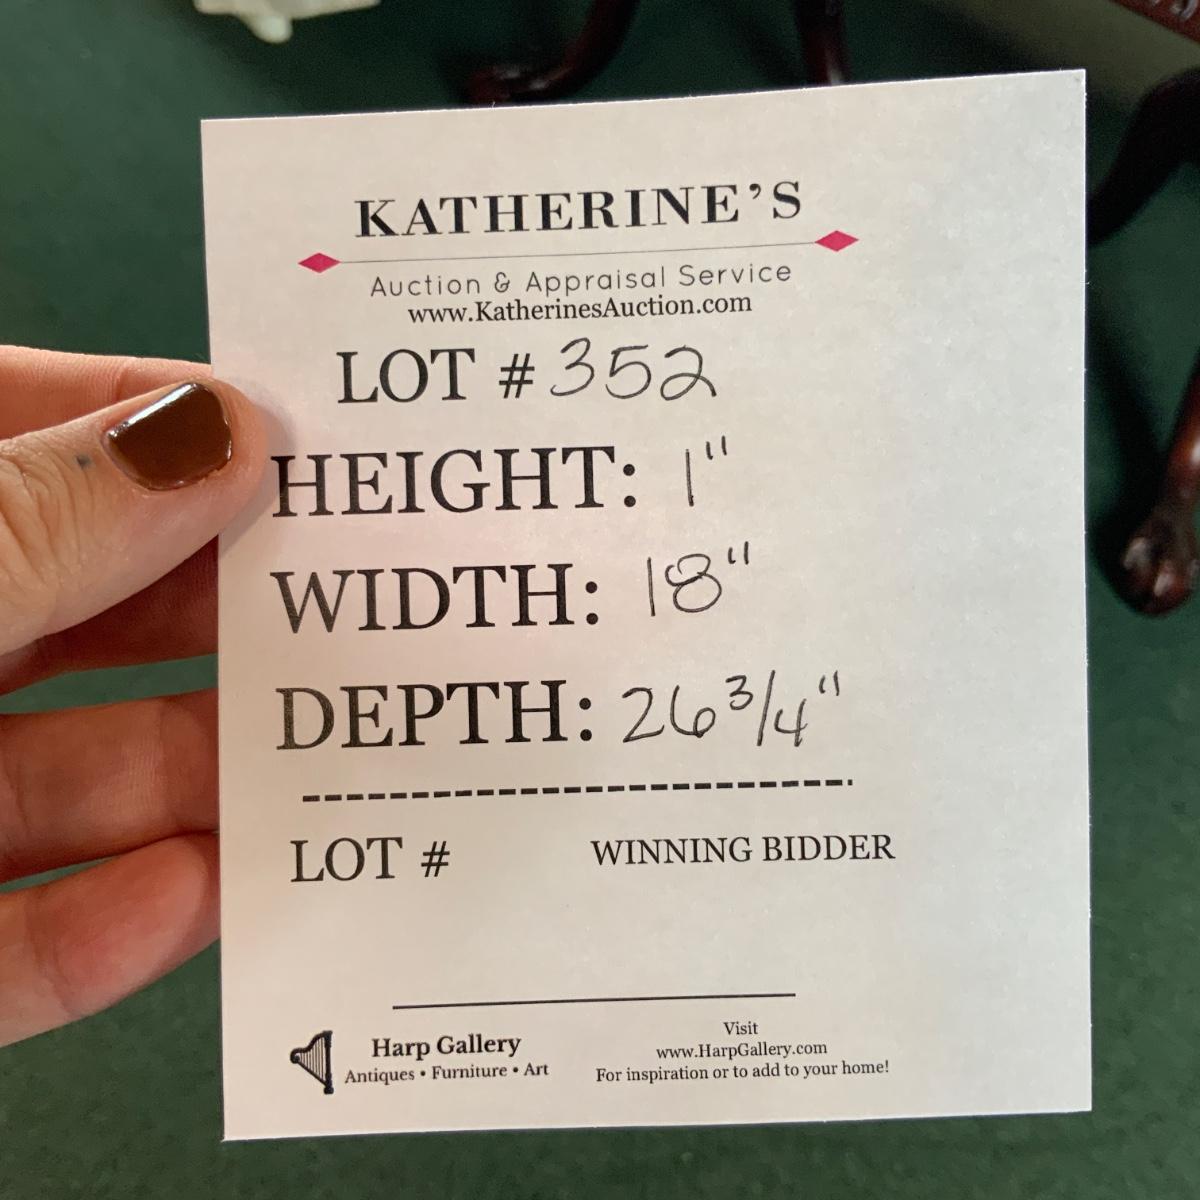 KATHERINE'S
Auction & Appraisal Service
www.KatherinesAuction.com
LOT # 352
HEIGHT: 1"
WIDTH: 18"
DEPTH: 26 3/4"
LOT # WINNING BIDDER
Harp Gallery
Antiques • Furniture • Art
Visit
www.HarpGallery.com
For inspiration or to add to your home!